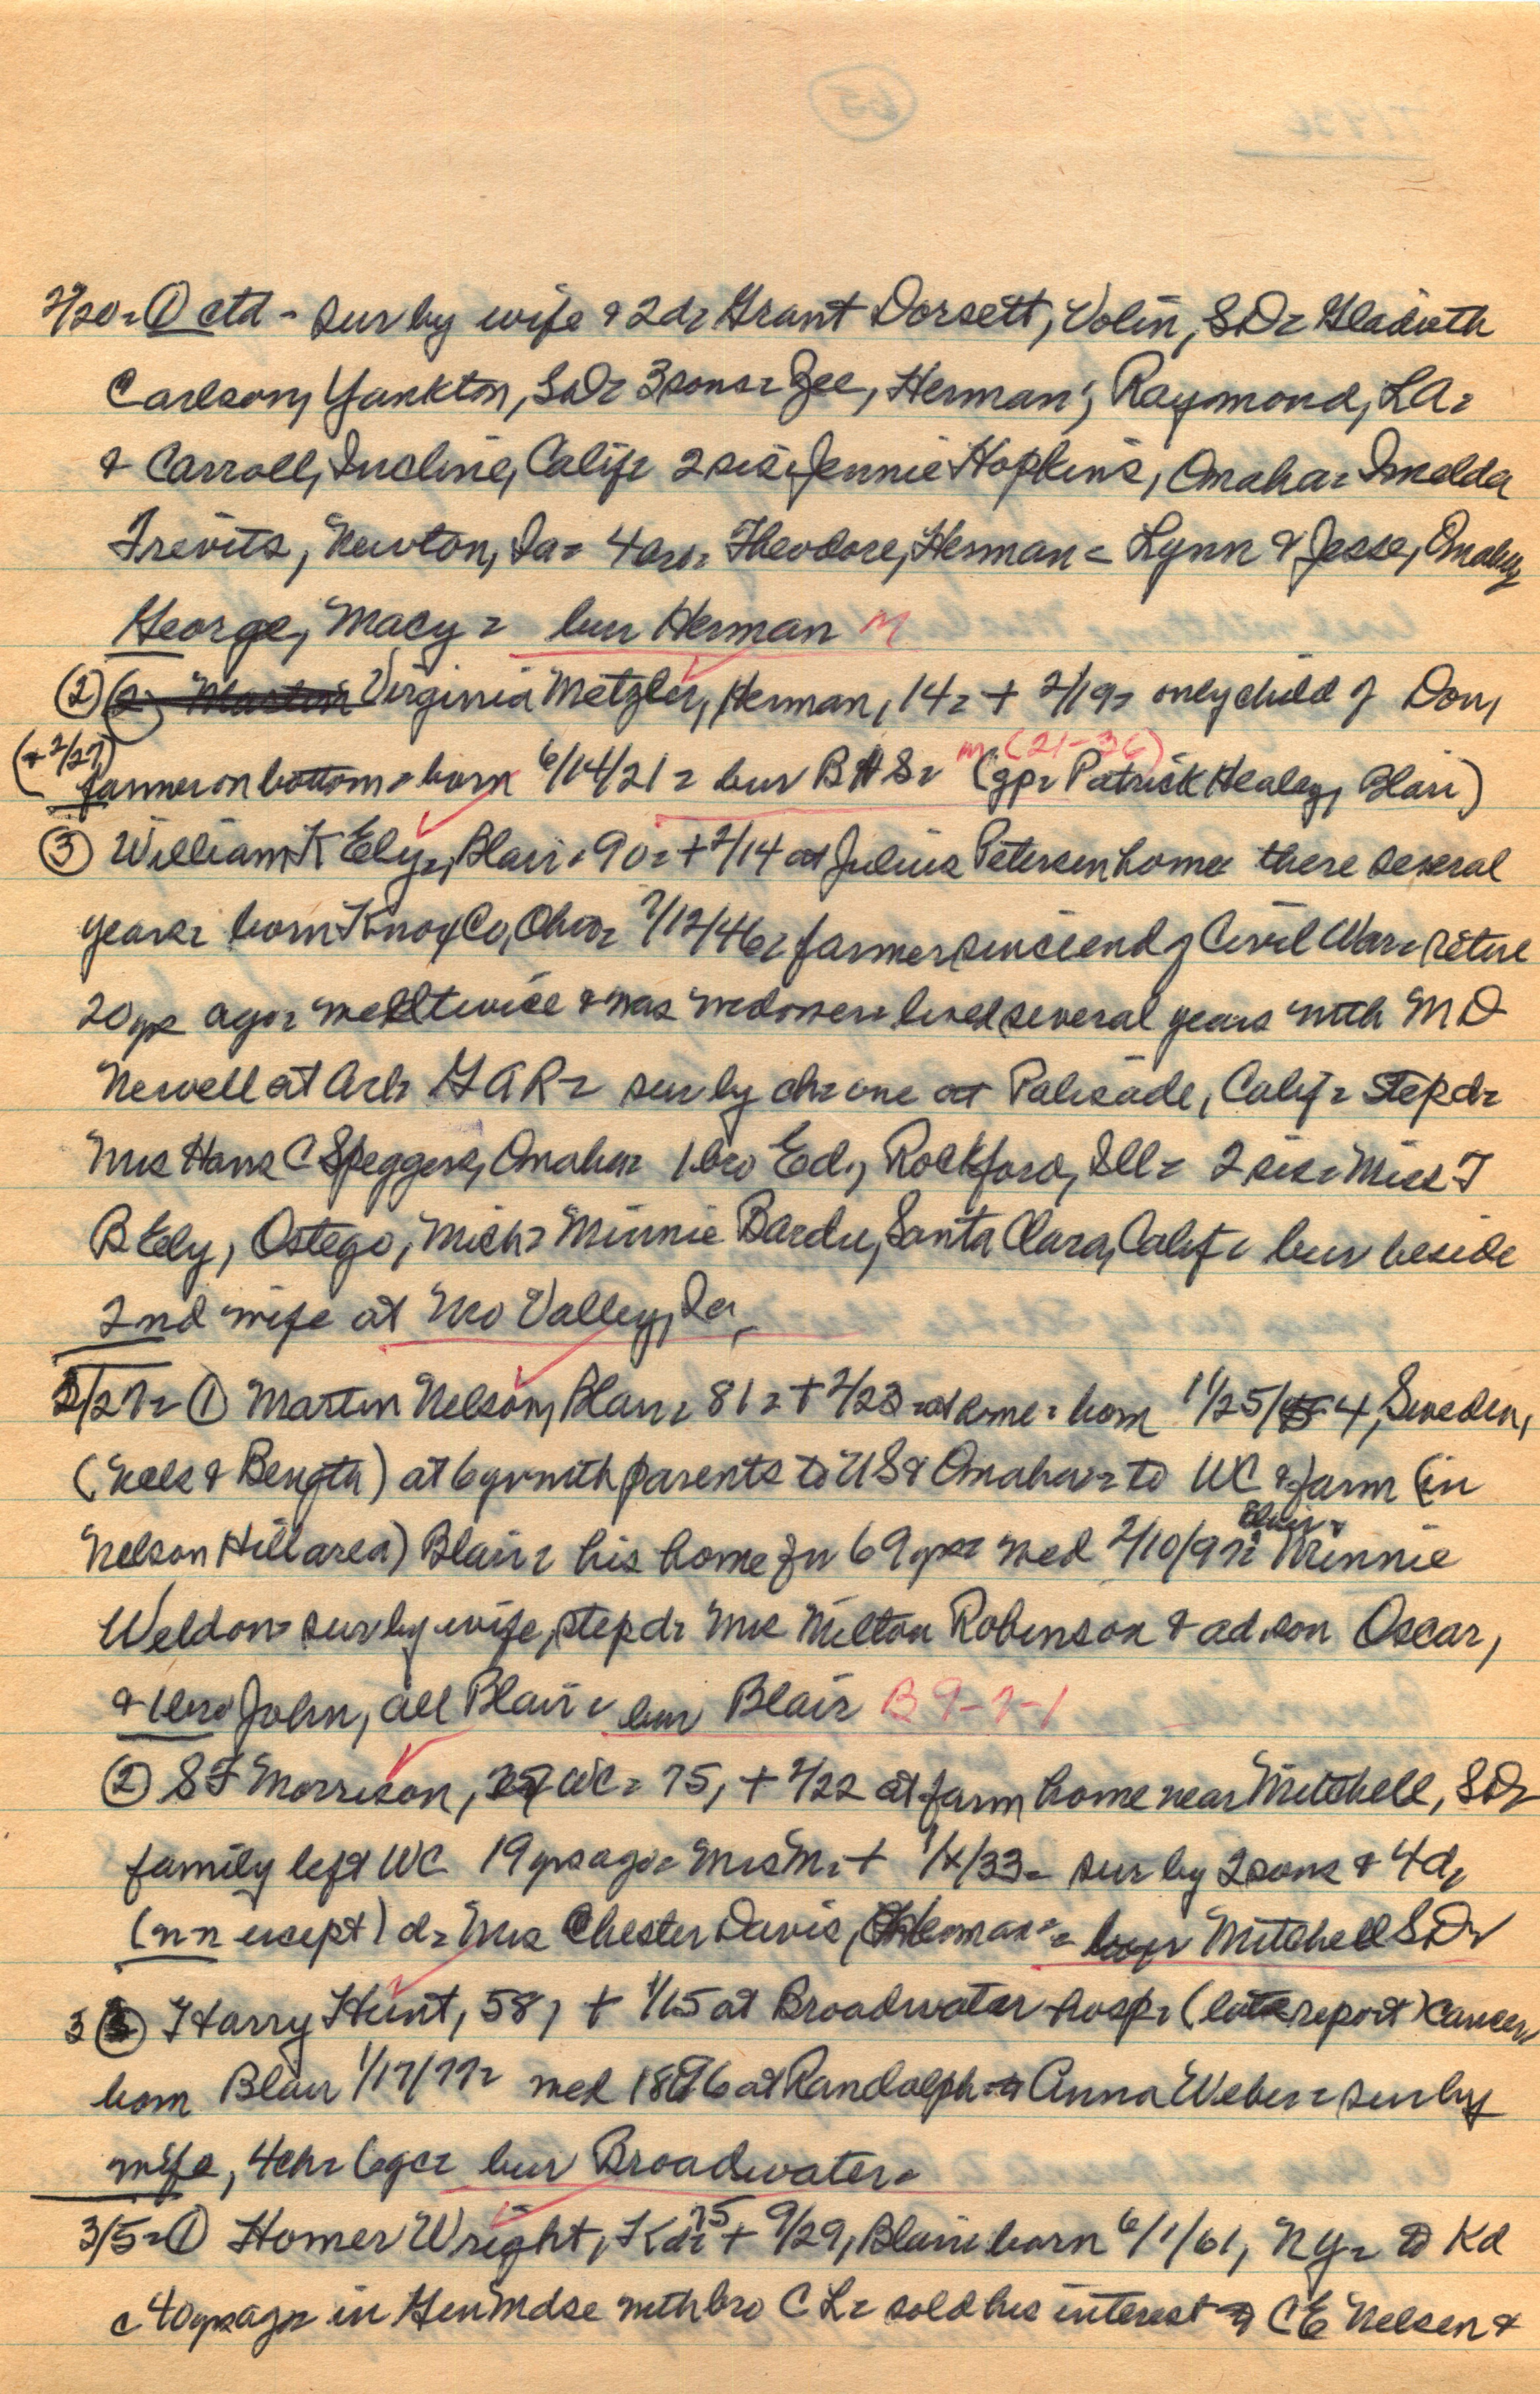 2/20 = ① ctd - sur by wife & 2d = Grant Dorsett, Volin, SD = Gladieth
Carlson, Yankton, SD = 3 sons = Zee, Herman; Raymond, LA =
& Carroll, Incline, Calif = 2 sis = Jennie Hopkins, Omaha = Imelda
Trevits, Newton, Ia = 4 bro = Theodore, Herman = Lynn & Jesse, Omaha,
George, Macy = bur Herman M
② Virginia Metzler, Herman, 14 = + 2/19 = only child of Don,
(+ 2/27) farmer on bottom = born 6/14/21 = bur BHS = m (21-36) (gp = Patrick Healey, Blair)
③ William K Ely =, Blair = 90 = + 2/14 at Julius Petersen home = there several
years = born Knox Co, Ohio = 7/12/46 = farmer since end of Civil War = retire
20 yrs ago = med twice & was widower = lived several years with M D
Newell at Arl = GAR = sur by ch = one at Palisade, Calif = stepd =
Mrs Hans C Speggers, Omaha = 1 bro Ed, Rockford, Ill = 2 sis = Miss T
B Ely, Ostego, Mich = Minnie Bardu, Santa Clara, Calif = bur beside
2nd wife at Mo Valley, Ia
2/27 = ① Martin Nelson, Blair = 81 = + 2/23 = at home = born 11/25/54, Sweden,
(Nels & Bengta) at 6 yr with parents to US & Omaha = to WC & farm (in
Nelson Hill area) Blair = his home for 69 yrs = med 2/10/97 = Blair = Minnie
Weldon = sur by wife, stepd = Mrs Milton Robinson & ad. son Oscar,
& 1 bro John, all Blair = bur Blair B 9-7-1
② S F Morrison, WC = 75, + 2/22 at farm home near Mitchell, SD =
family left WC 19 yrs ago = Mrs M = + 1/x/33 = sur by 2 sons & 4 d,
(nn except) d = Mrs Chester Davis, Herman = bur Mitchell SD
3 Harry Hunt, 58, + 1/15 at Broadwater hosp = (late report) cancer
born Blair 1/17/77 = med 1896 at Randolph = Anna Weber = sur by
wife, 4 ch = 6 gc = bur Broadwater =
3/5 = ① Homer Wright, Kd = 75 + 9/29, Blair = born 6/1/61, NY = to Kd
c 40 yrs ago = in Gen Mdse with bro C L = sold his interest to C E Nelsen &